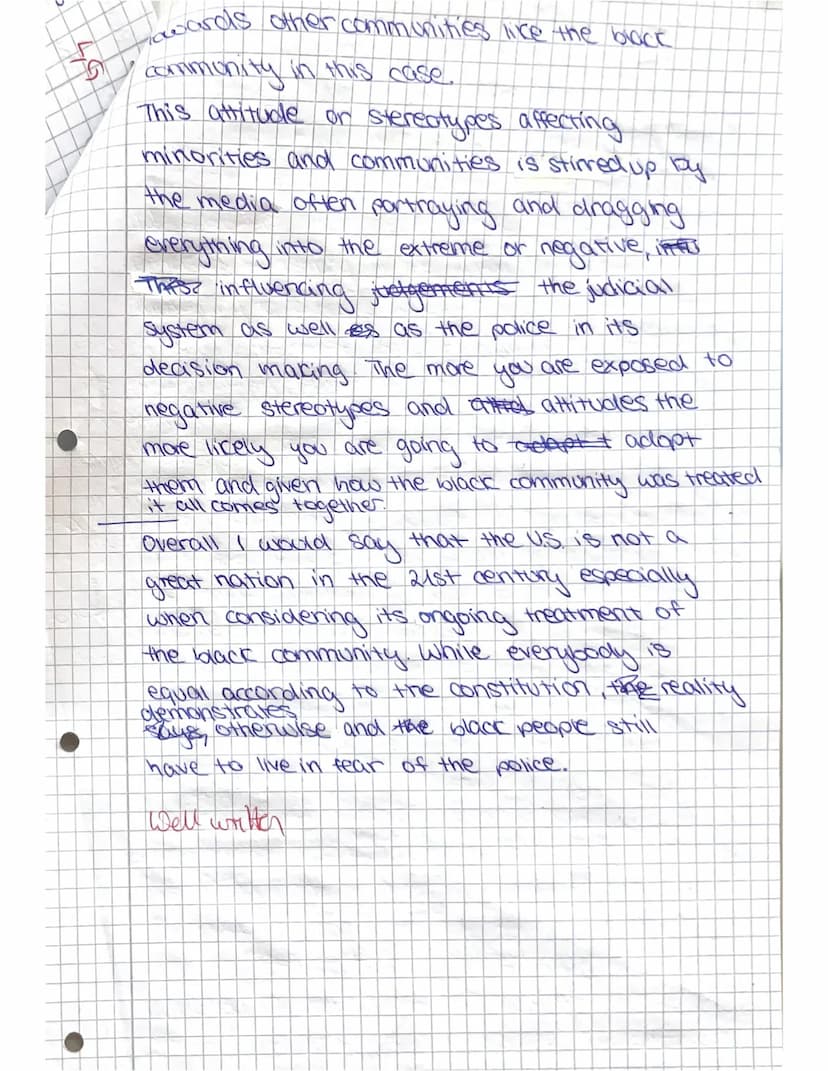 towards other communities like the black
community in this case.
This attitude or stereotypes affecting
minorities and communities is stirred up by
the media often portraying and dragging
everything into the extreme or negative,
This? influencing judgements the judicial
system as well es as the police in its
decision making. The more you are exposed to
negative stereotypes and attitudes the
more likely you are going to adapt t adopt
them and given how the black community was treated
it all comes together.
Overall I would say that the U.S. is not a
great nation in the 21st century especially
when considering its ongoing treatment of
the black community. While everybody is
equal according to the constitution, the reality
demonstrates
says, otherwise and the black people still
have to live in fear of the police.
Well written